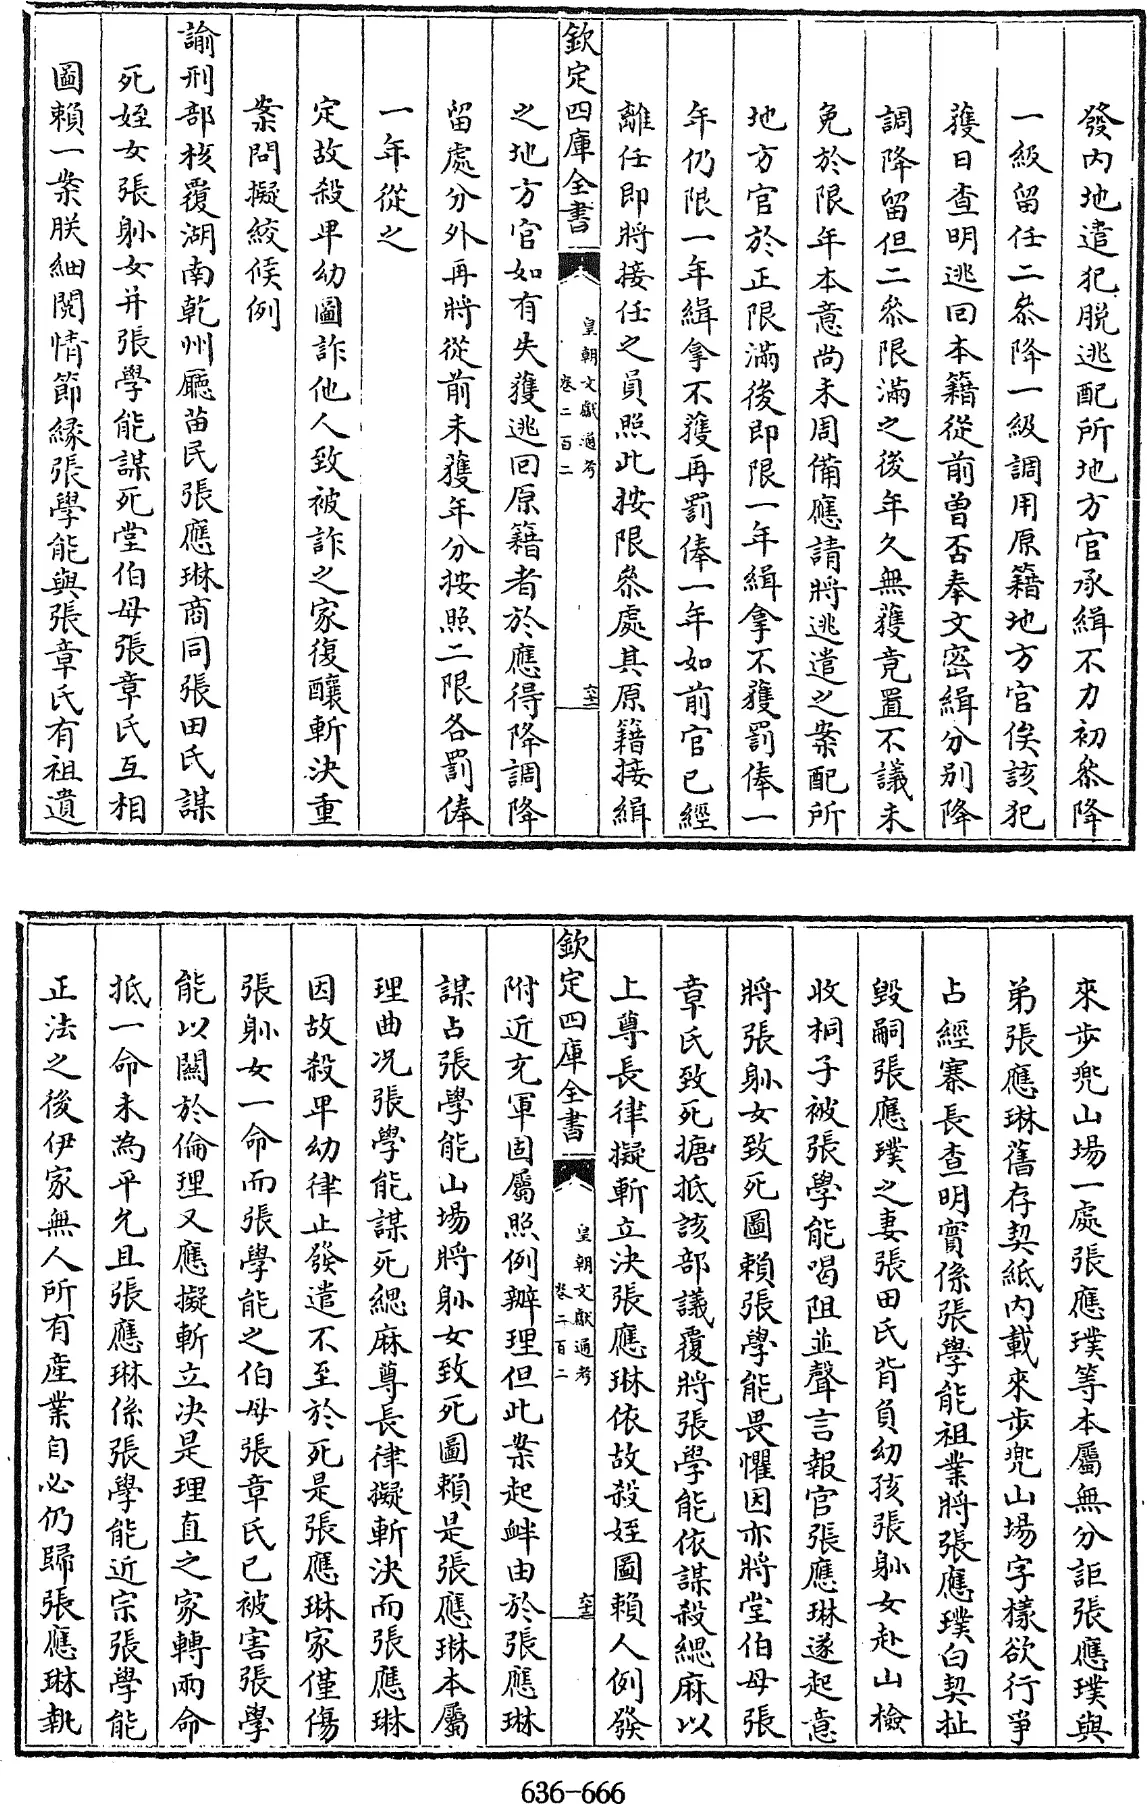 發内地遣犯脱逃配所地方官承緝不力初叅降
一級留任二叅降一級調用原籍地方官俟該犯
獲日查明逃回本籍從前曽否奉文密緝分别降
調降留但二叅限滿之後年久無獲竟置不議未
免於限年本意尚未周備應請將逃遣之案配所
地方官於正限滿後即限一年緝拿不獲罰俸一
年仍限一年緝拿不獲再罰俸一年如前官已經
離任即將接任之員照此按限叅處其原籍接緝
欽定四庫全書
皇朝文獻通考
卷二百二
六十二
之地方官如有失獲逃回原籍者於應得降調降
留處分外再將從前未獲年分按照二限各罰俸
一年從之
定故殺卑幼圖詐他人致被詐之家復釀斬決重
案問擬絞候例
諭刑部核覆湖南乾州廳苗民張應琳商同張田氏謀
死姪女張躰女并張學能謀死堂伯母張章氏互相
圖賴一案朕細閲情節縁張學能與張章氏有祖遺
來步兠山場一處張應璞等本屬無分詎張應璞與
弟張應琳舊存契紙内載來步兠山場字樣欲行爭
占經寨長查明實係張學能祖業將張應璞白契扯
毀嗣張應璞之妻張田氏背負幼孩張躰女赴山檢
收桐子被張學能喝阻並聲言報官張應琳遂起意
將張躰女致死圖賴張學能畏懼因亦將堂伯母張
章氏致死搪抵該部議覆將張學能依謀殺緦麻以
上尊長律擬斬立決張應琳依故殺姪圖賴人例發
欽定四庫全書
皇朝文獻通考
卷二百二
六十三
附近充軍固屬照例辦理但此案起衅由於張應琳
謀占張學能山場將躰女致死圖賴是張應琳本屬
理曲况張學能謀死緦麻尊長律擬斬決而張應琳
因故殺卑幼律止發遣不至於死是張應琳家僅傷
張躰女一命而張學能之伯母張章氏已被害張學
能以關於倫理又應擬斬立决是理直之家轉兩命
抵一命未為平允且張應琳係張學能近宗張學能
正法之後伊家無人所有產業自必仍歸張應琳執
636-666